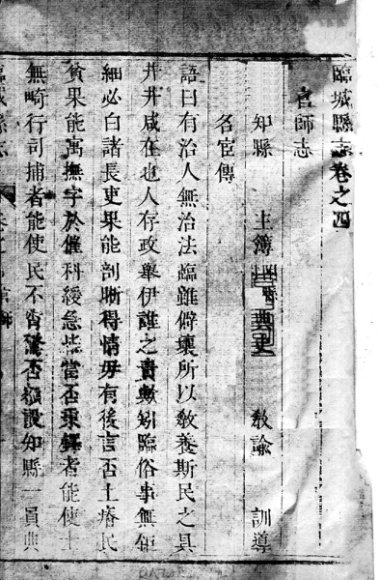 臨城縣志卷之四
官師志
知縣 主簿 典史 教諭 訓導
名宦傳
語曰有治人無治法臨雖僻壤所以教養斯民之具
井井咸在也人存政舉伊誰之責歟矧臨俗事無鉅
細必白諸長吏果能剖晰得情毋有後言否土瘠民
貧果能寓撫字於催科緩急悉當否乘鐸者能使士
無畸行司捕者能使民不告驚否額設知縣一員典
臨城縣志 卷之四